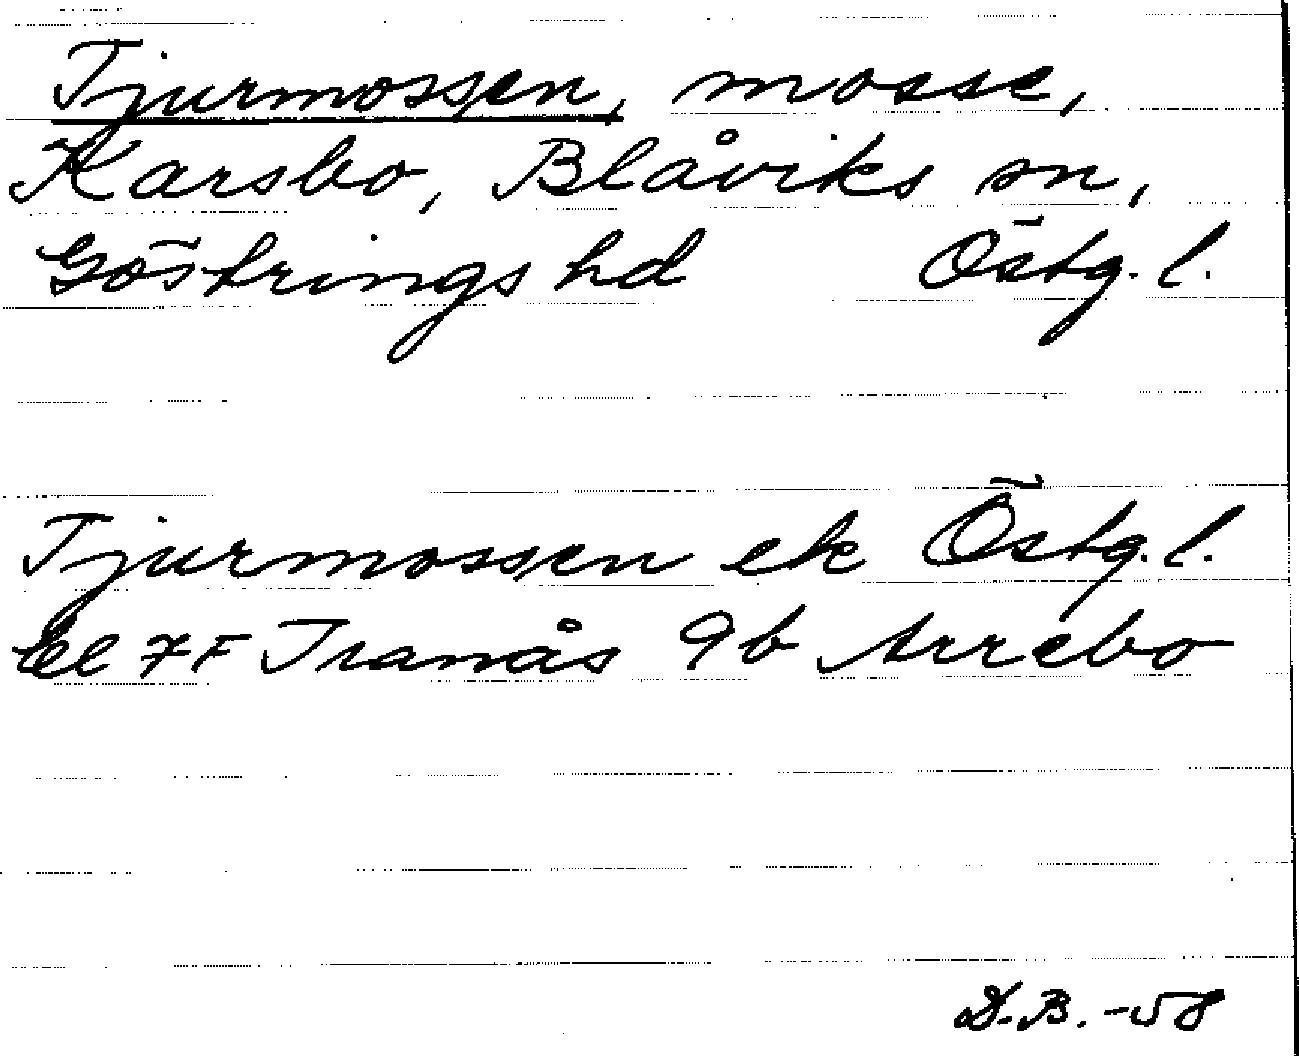 Tjurmossen, mosse,
Karsbo, Blåviks sn,
Göstrings hd Östg. l.
Tjurmossen ek Östg. l.
bl 7F Tranås 9b Arrebo
D.B. -58